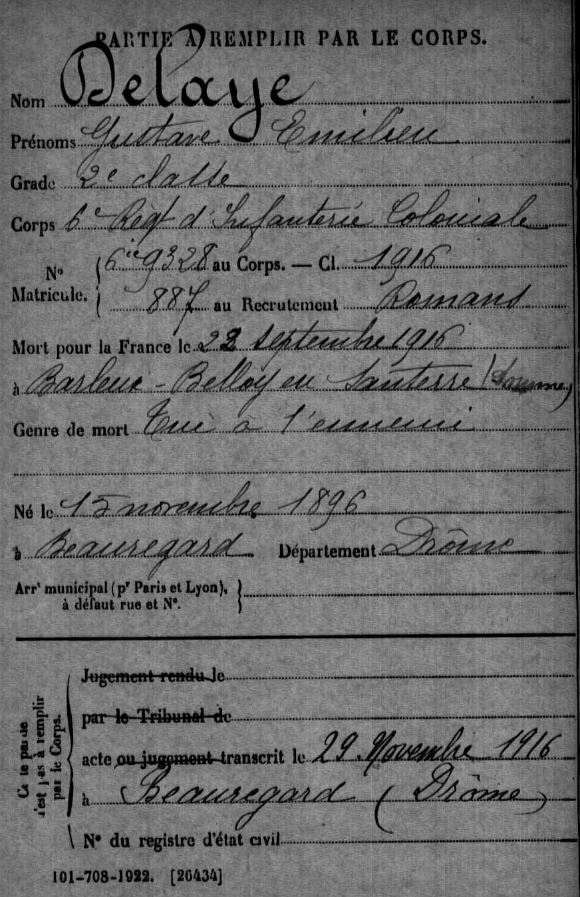 PARTIE À REMPLIR PAR LE CORPS.
Nom Delaye
Prénoms Gustave Emilien
Grade 2e classe
Corps 6e Régt d'Infanterie Coloniale
N° Matricule. { 6ie 9328 au Corps. — Cl. 1916
887 au Recrutement Romans
Mort pour la France le 22 septembre 1916
à Barleux - Belloy en Santerre (Somme)
Genre de mort Tué à l'ennemi
Né le 15 novembre 1896
à Beauregard Département Drôme
Arrt municipal (pr Paris et Lyon), }
à défaut rue et N°.
Jugement rendu le
par le Tribunal de
acte ou jugement transcrit le 29 Novembre 1916
à Beauregard (Drôme)
N° du registre d'état civil
Ce te partie
n'est pas à remplir
par le Corps.
101-708-1922. [26434]